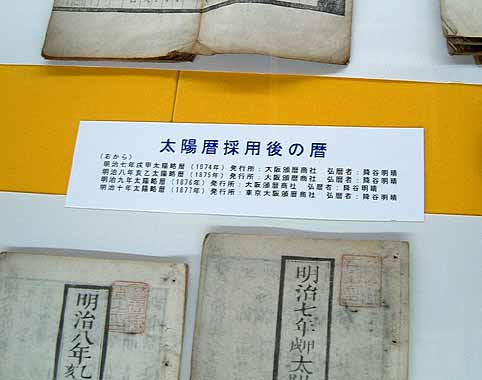 太陽暦採用後の暦
(右から)
明治七年戌甲太陽略暦 (1874年) 発行所:大阪頒暦商社 弘暦者:降谷明晴
明治八年亥乙太陽略暦 (1875年) 発行所:大阪頒暦商社 弘暦者:降谷明晴
明治九年太陽略暦 (1876年) 発行所:大阪頒暦商社 弘暦者:降谷明晴
明治十年太陽略暦 (1877年) 発行所:東京大阪頒暦商社 弘暦者:降谷明晴
明治七年戌甲太陽
明治八年乙亥